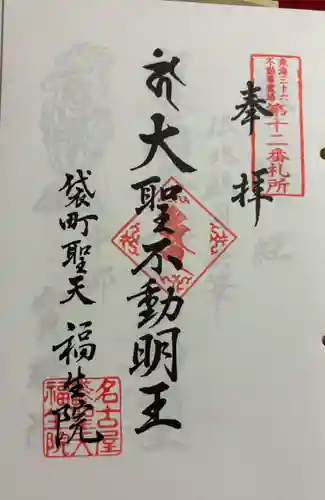 東海三十六
不動尊霊場
第十二番札所
奉拝
大聖不動明王
袋町聖天
福生院
名古屋
袋町聖天
福生院